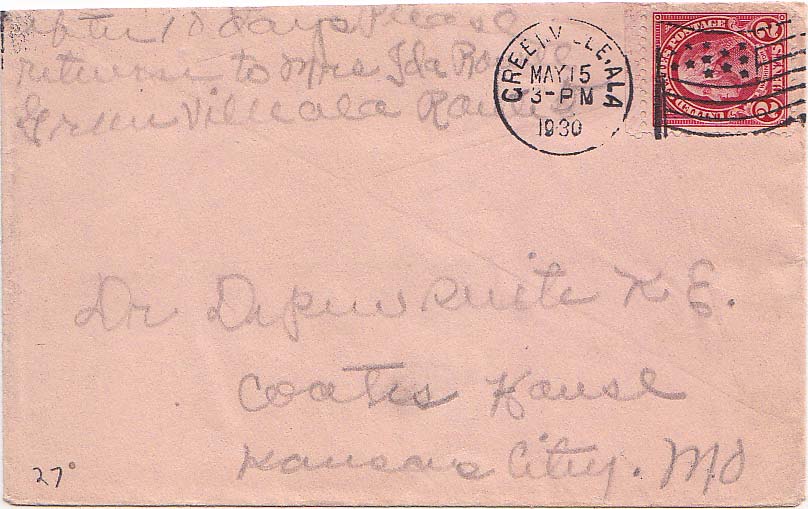 after 10 days Please
return to Mrs Ida
Green Ville ala Route
GREENVILLE, ALA
MAY 15
3-PM
1930
UNITED STATES POSTAGE
2 CENTS 2
Dr
Coates House
Kansas City. Mo
27°